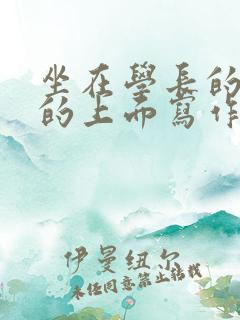 坐在學長的
的上面寫作
伊曼紐尔
未任同意禁止转载